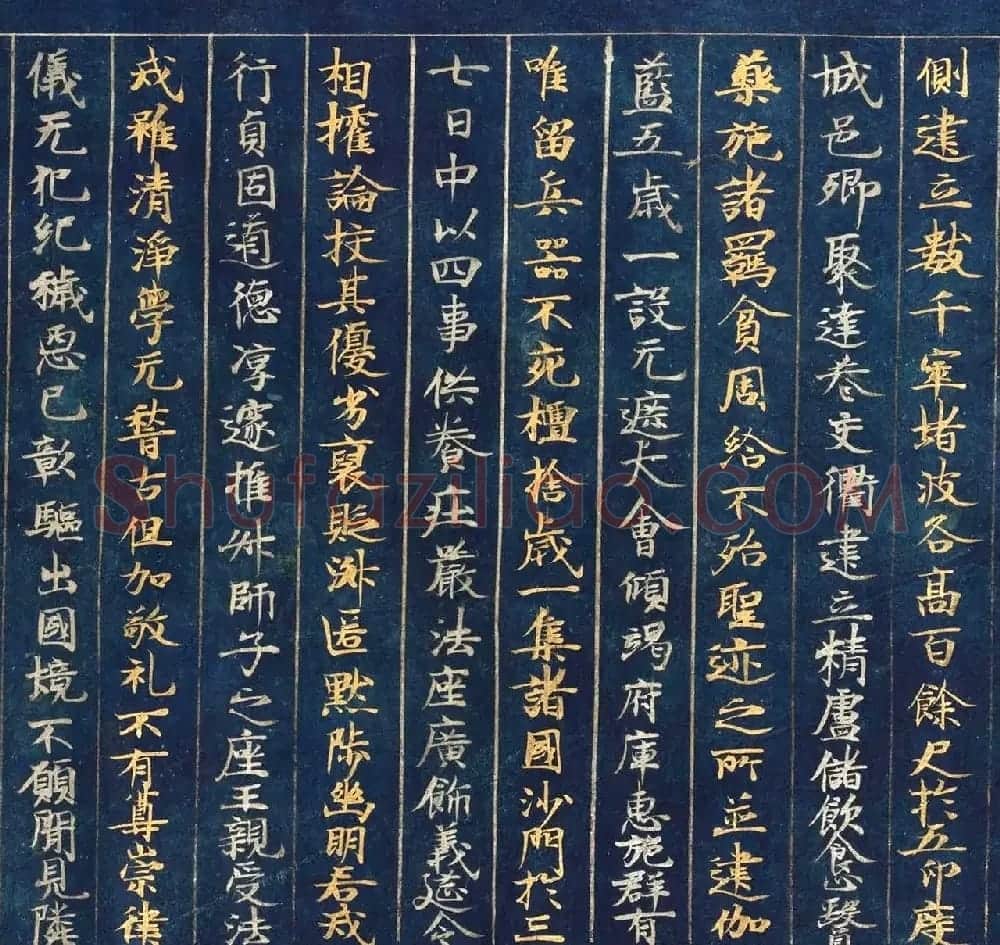 側建立數千窣堵波各高百餘尺於五印度
城邑鄉聚達巷交衢建立精盧儲飲食醫
藥施諸羇貧周給不殆聖迹之所並建伽
藍五歲一設无遮大會傾竭府庫惠施群有
唯留兵器不充檀捨歲一集諸國沙門於三
七日中以四事供養莊嚴法座廣飾義筵令
相攉論挍其優劣褒貶淑慝黜陟幽明若戒
行貞固道德淳邃推昇師子之座王親受法
戒雖清淨學无稽古但加敬礼不有尊崇律
儀无犯紀穢惡已彰驅出國境不願聞見隣
Shufaziliao.COM